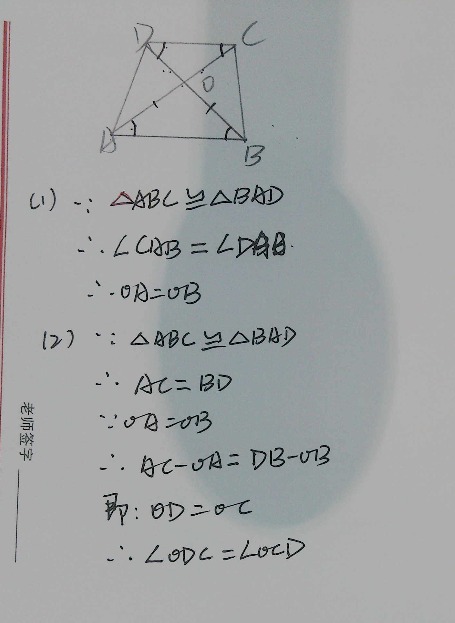 D C
O
A B
(1) ∵ △ABC≌△BAD
∴ ∠CAB=∠D
∴ OA=OB
(2) ∵ △ABC≌△BAD
∴ AC=BD
∵ OA=OB
∴ AC-OA=DB-OB
即:OD=OC
∴ ∠ODC=∠OCD
老师签字